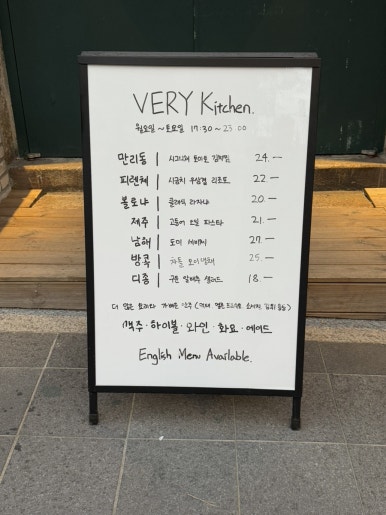 VERY Kitchen.
월요일 ~ 토요일 17:30 ~ 23:00
만리동 | 시그니쳐 토마토 김치찜 24.-
피렌체 | 시금치 우삼겹 리조또 22.-
볼로냐 | 클래식 라자냐 20.-
제주 | 고등어 오일 파스타 21.-
남해 | 도미 세비체 27.-
방콕 | 차돌 25.-
디종 | 구운 알배추 샐러드 18.-
더 많은 요리와 가벼운 안주
맥주 · 하이볼 · 와인 · 화요 · 에이드
English Menu Available.